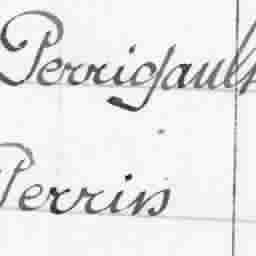 Perrigault
Perrin